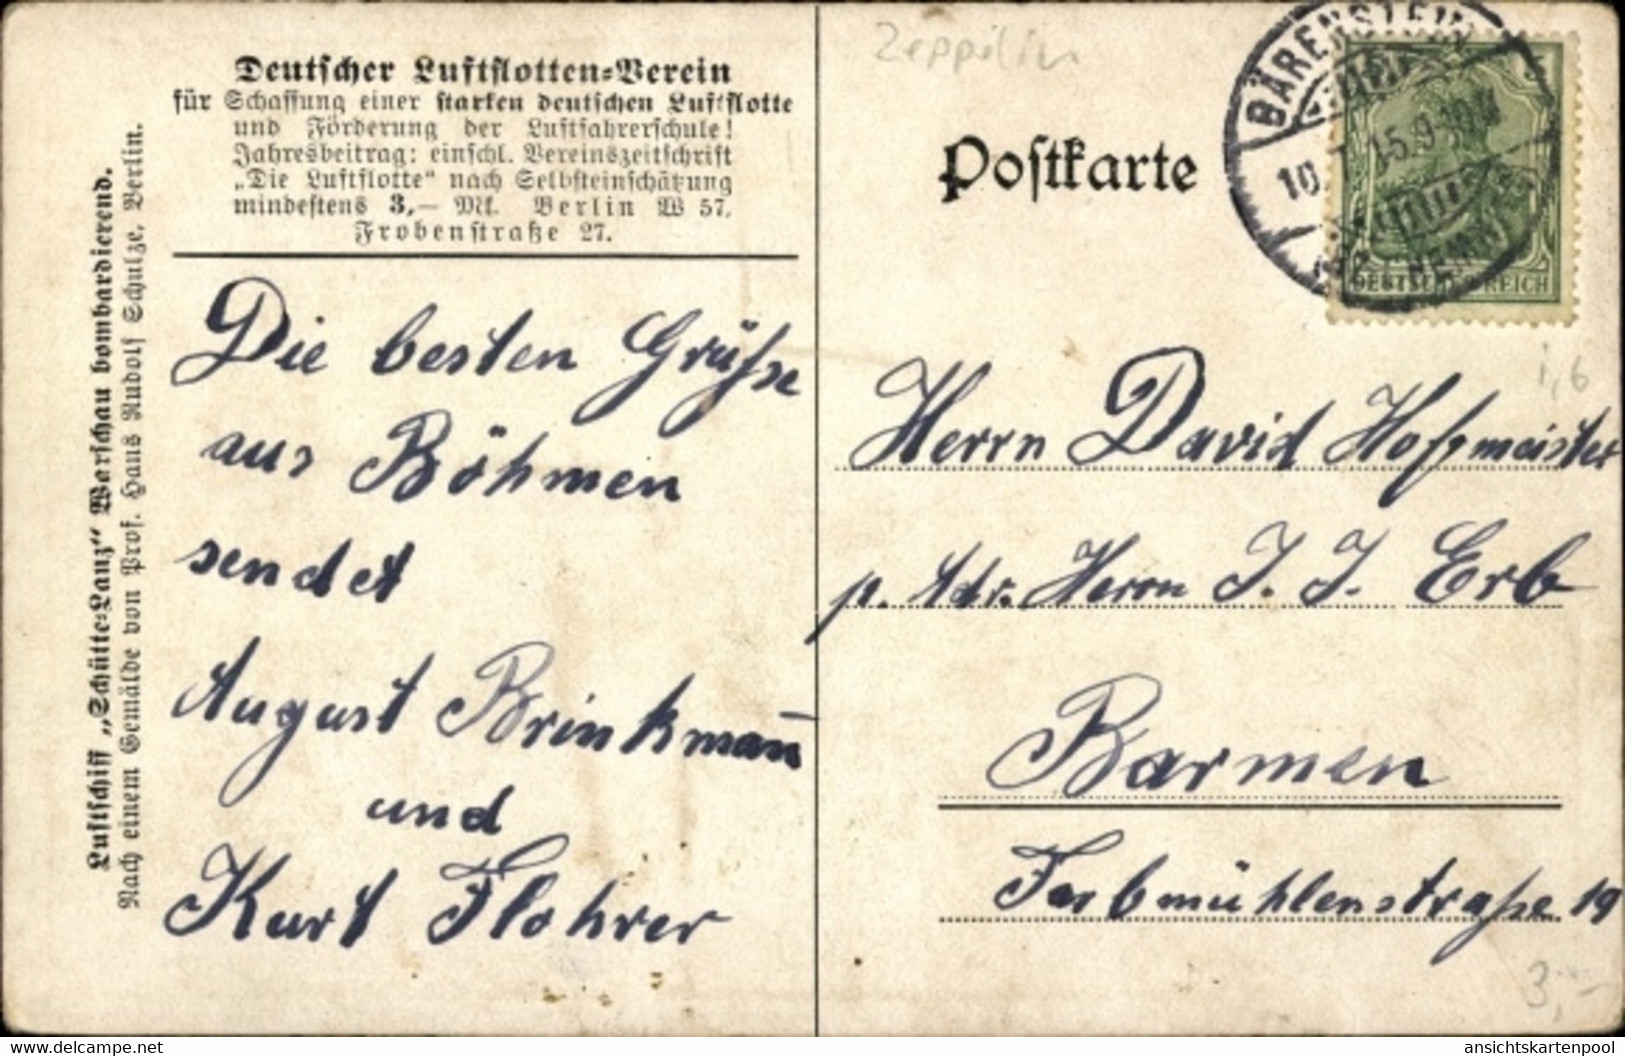 Deutscher Luftflotten-Verein
für Schaffung einer starken deutschen Luftflotte
und Förderung der Luftfahrerschule!
Jahresbeitrag: einschl. Vereinszeitschrift
„Die Luftflotte“ nach Selbsteinschätzung
mindestens 3,— Mk. Berlin W 57,
Frobenstraße 27.
Luftschiff „Schütte-Lanz“ Warschau bombardierend.
Nach einem Gemälde von Prof. Hans Rudolf Schulze, Berlin.
Die besten Grüsse
aus Böhmen
sendet
August Brinkman̅
und
Kurt Flohrer
Zeppelin
Postkarte
BÄRENSTEIN
10 15.9-10V
DEUTSCHES REICH
1,6
Herrn David Hofmeister
p. Adr. Herrn J. J. Erb
Barmen
Farbmühlenstrasse 19
3,-
ansichtskartenpool
www.delcampe.net